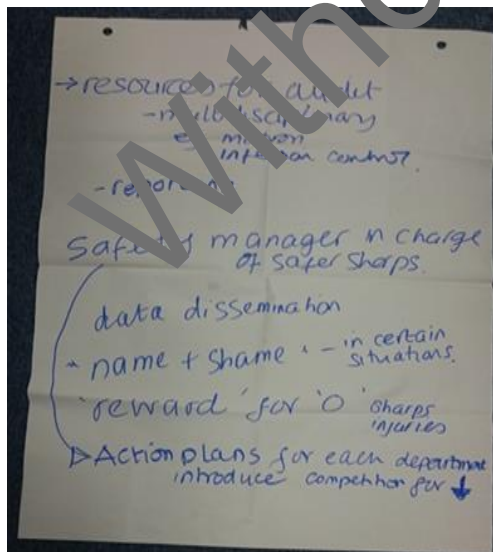 → resources for audit
- multidisciplinary
eg matron
infection control.
- reporting
Safety manager in charge
of safer sharps.
data dissemination
"name + shame" - in certain
situations.
'reward' for '0' sharps
injuries
→ Action plans for each department
introduce competition for ↓